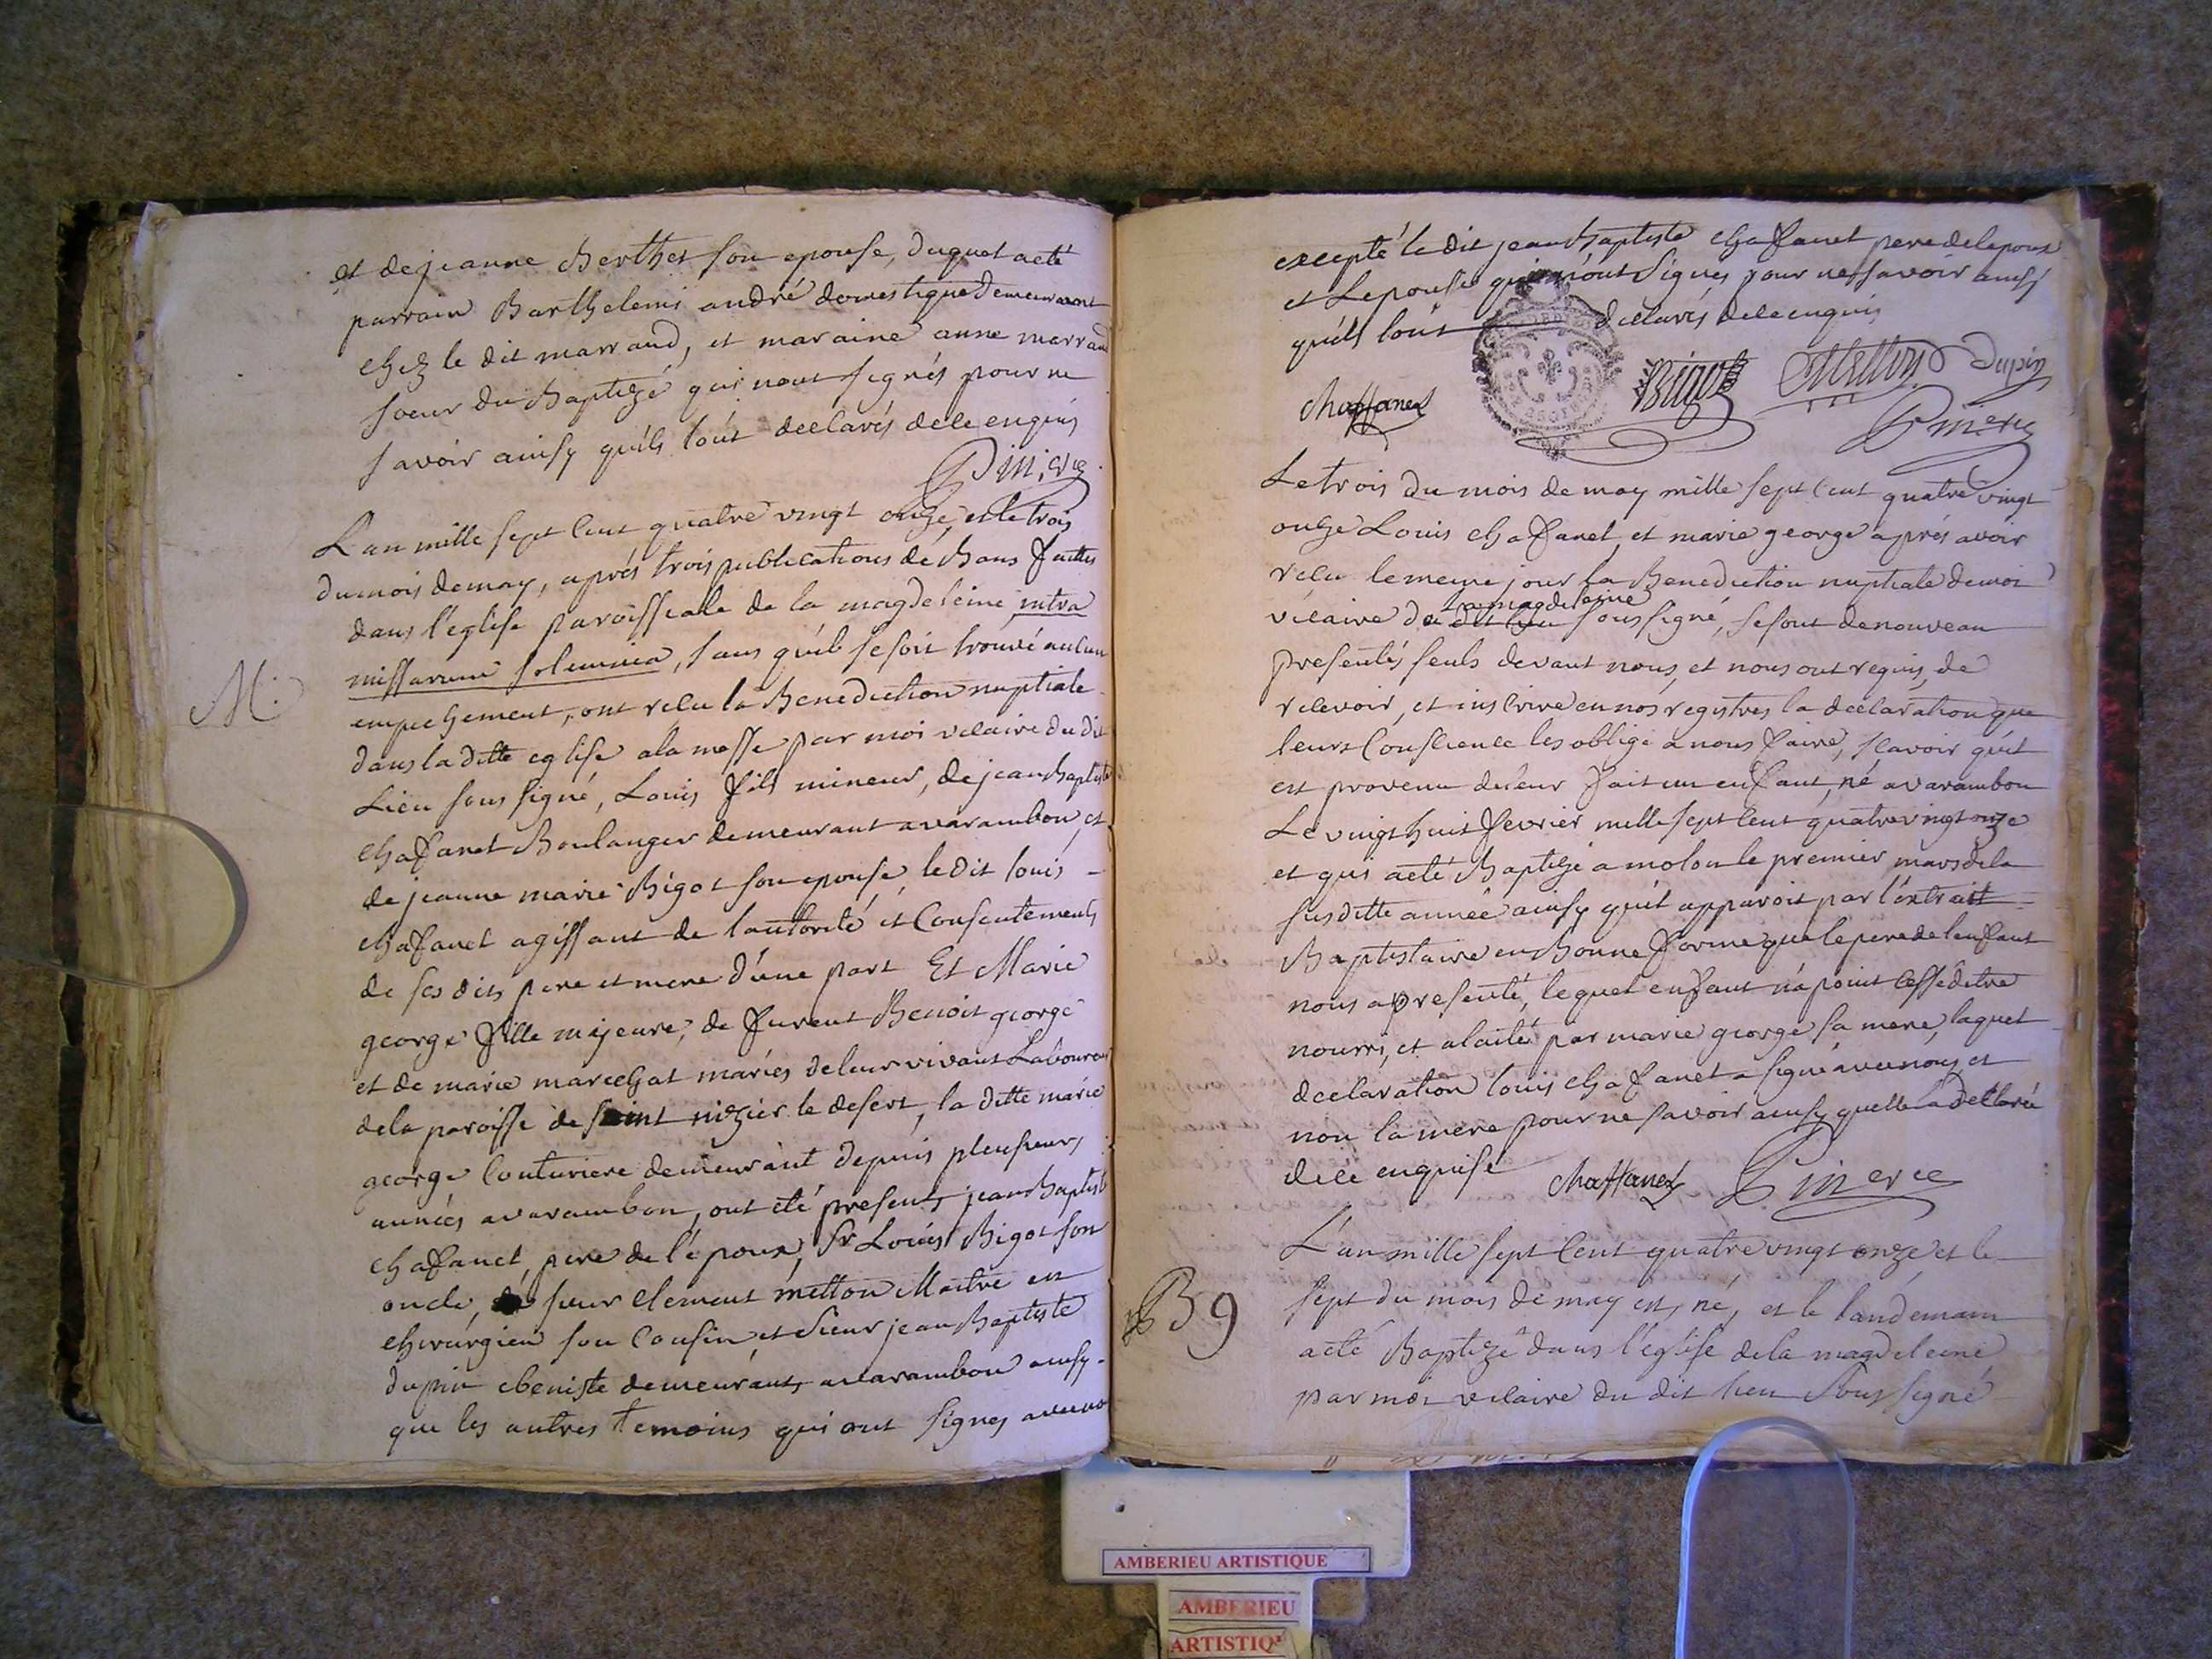 et de jeanne Berthet son epouse, duquel a eté
parrain Barthelemi andré domestique demeurant
chez le dit marraud, et maraine anne marraud
soeur du Baptizé qui n'ont signés pour ne
savoir ainsy qu'ils l'ont declarés de ce enquis
Pinerez
L'an mille sept cent quatre vingt onze, et le trois
du mois de may, aprés trois publications de Bans faittes
dans l'eglise paroissiale de la magdeleine intra
M.
missarum solemnia, sans qu'il se soit trouvé aucun
empechement, ont recu la Benediction nuptiale
dans la ditte eglise a la messe par moi vicaire du dit
Lieu soussigné, Louis fils mineur, de jean Baptiste
chafanet Boulanger demeurant a varambon, et
de jeanne marie Bigot son epouse, le dit louis
chafanet agissant de l'autorité et consentements
de ses dits pere et mere d'une part Et Marie
george fille majeure, de furent Benoit george
et de marie marechat mariés de leur vivant Laboureurs
de la paroisse de saint nizier le desert, la ditte marie
george couturiere demeurant depuis plusieurs
années a varambon, ont eté presents jean Baptiste
chafanet, pere de l'époux, Sr Louis Bigot son
oncle, sieur clement metton Maitre en
chirurgien son cousin, et Sieur jean Baptiste
dupin ebeniste demeurants a varambon ainsy
que les autres temoins qui ont signes avec nous
excepté le dit jean Baptiste chafanet pere de lepoux
et Lepouse qui n'ont signes pour ne savoir ainsy
qu'ils l'ont declarés de ce enquis
chaffanet Bigot Metton Dupin
Pinerez
Le trois du mois de may mille sept cent quatre vingt
onze Louis chafanet, et marie george aprés avoir
recu le meme jour la Benediction nuptiale de moi
la magdeleine
vicaire de dit lieu soussigné, se sont de nouveau
presentés seuls devant nous, et nous ont requis, de
recevoir, et inscrire en nos registres la declaration que
leurs conscience les oblige a nous faire, scavoir qu'il
est provenu de leur fait un enfant, né a varambon
Le vingt huit fevrier mille sept cent quatre vingt onze
et qui a eté Baptizé a molon le premier mars de la
susditte année ainsy qu'il apparoit par l'extrait
Baptistaire en Bonne forme que le pere de l'enfant
nous a presenté, lequel enfant n'a point cessé detre
nourri, et alaité par marie george sa mere, laquel
declaration louis chafanet a signé avec nous, et
non la mere pour ne savoir ainsy quelle a declaré
de ce enquise chaffanet Pinerez
L'an mille sept cent quatre vingt onze et le
B 9
sept du mois de may est né, et le landemain
a eté Baptizé dans l'église de la magdeleine
par moi vicaire du dit lieu Soussigné
AMBERIEU ARTISTIQUE
AMBERIEU
ARTISTIQ